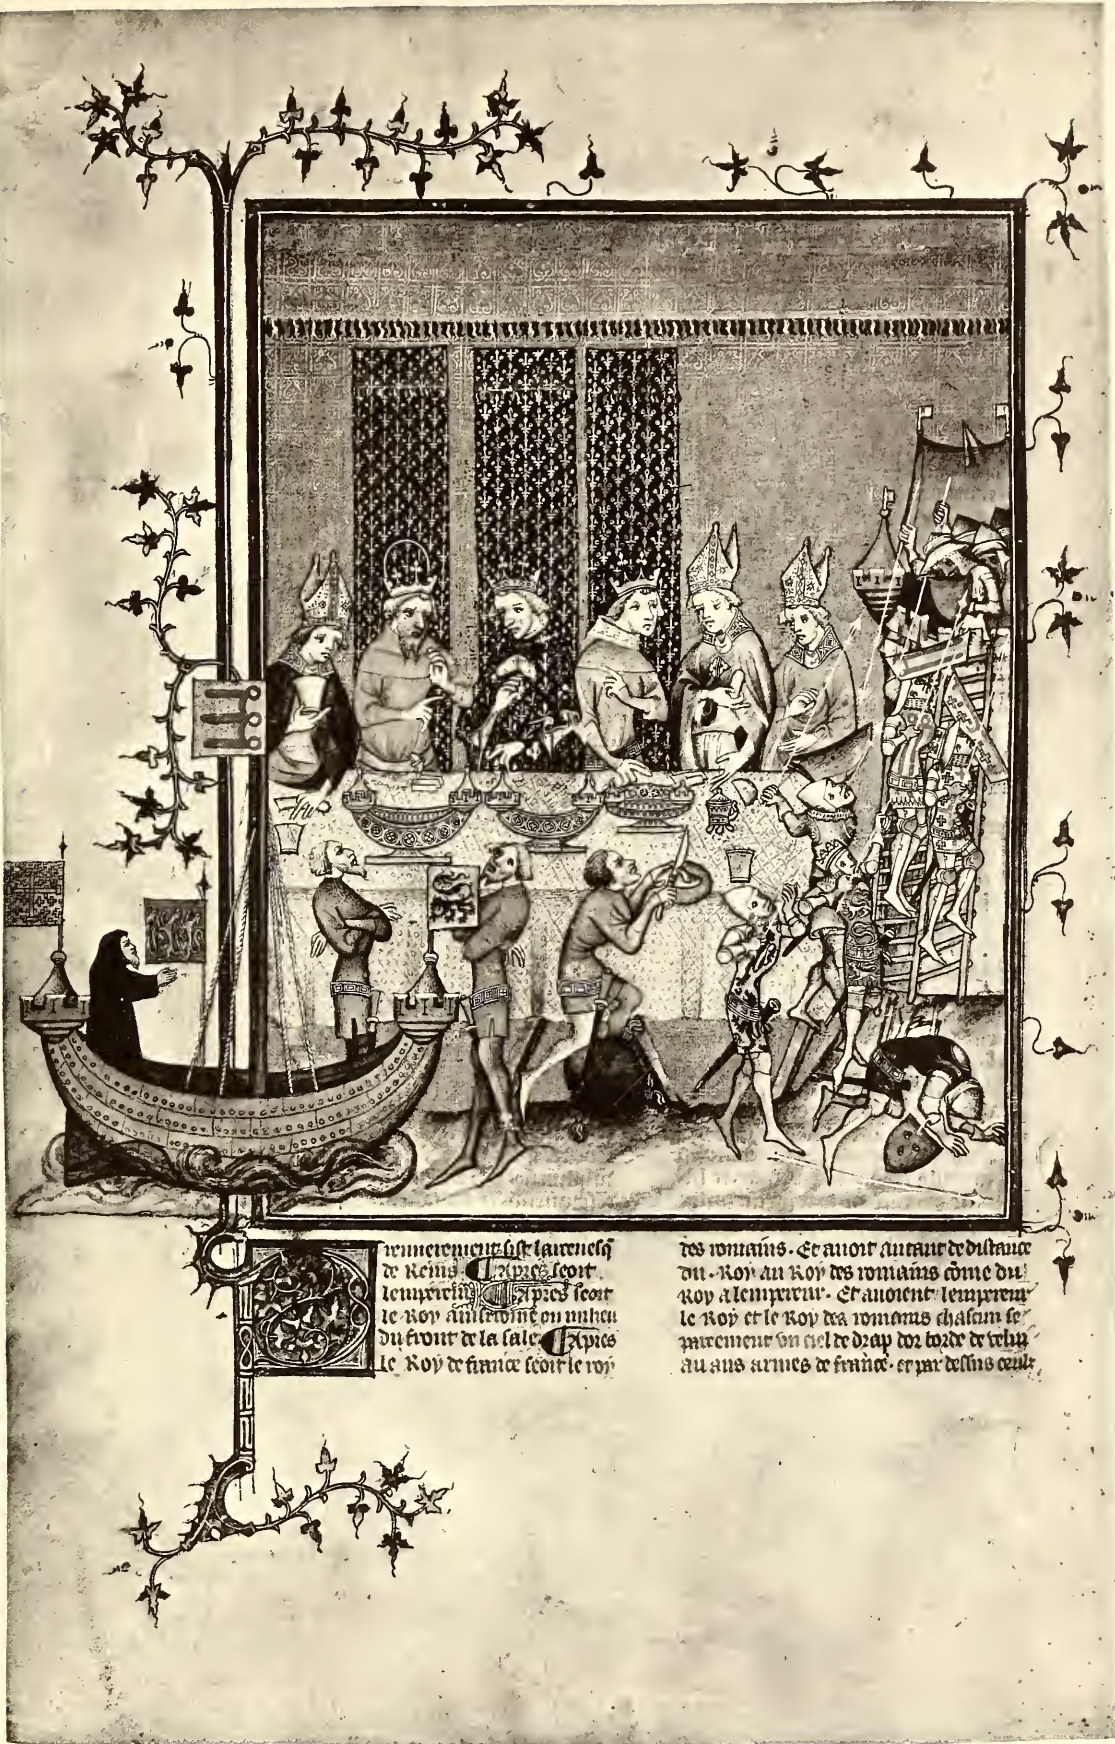 remierement sist larcevesq
de Reins. Apres seoit
lempereur. Apres seoit
le Roy ainsi come ou milieu
du front de la sale. Apres
le Roy de france seoit le roy
des romains. Et avoit autant de distance
du Roy au Roy des romains côme du
Roy a lempereur. Et avoient lempereur
le Roy et le Roy des romains chascun se
parement un ciel de drap dor borde de velu
au aus armes de france. et par dessus ceulx